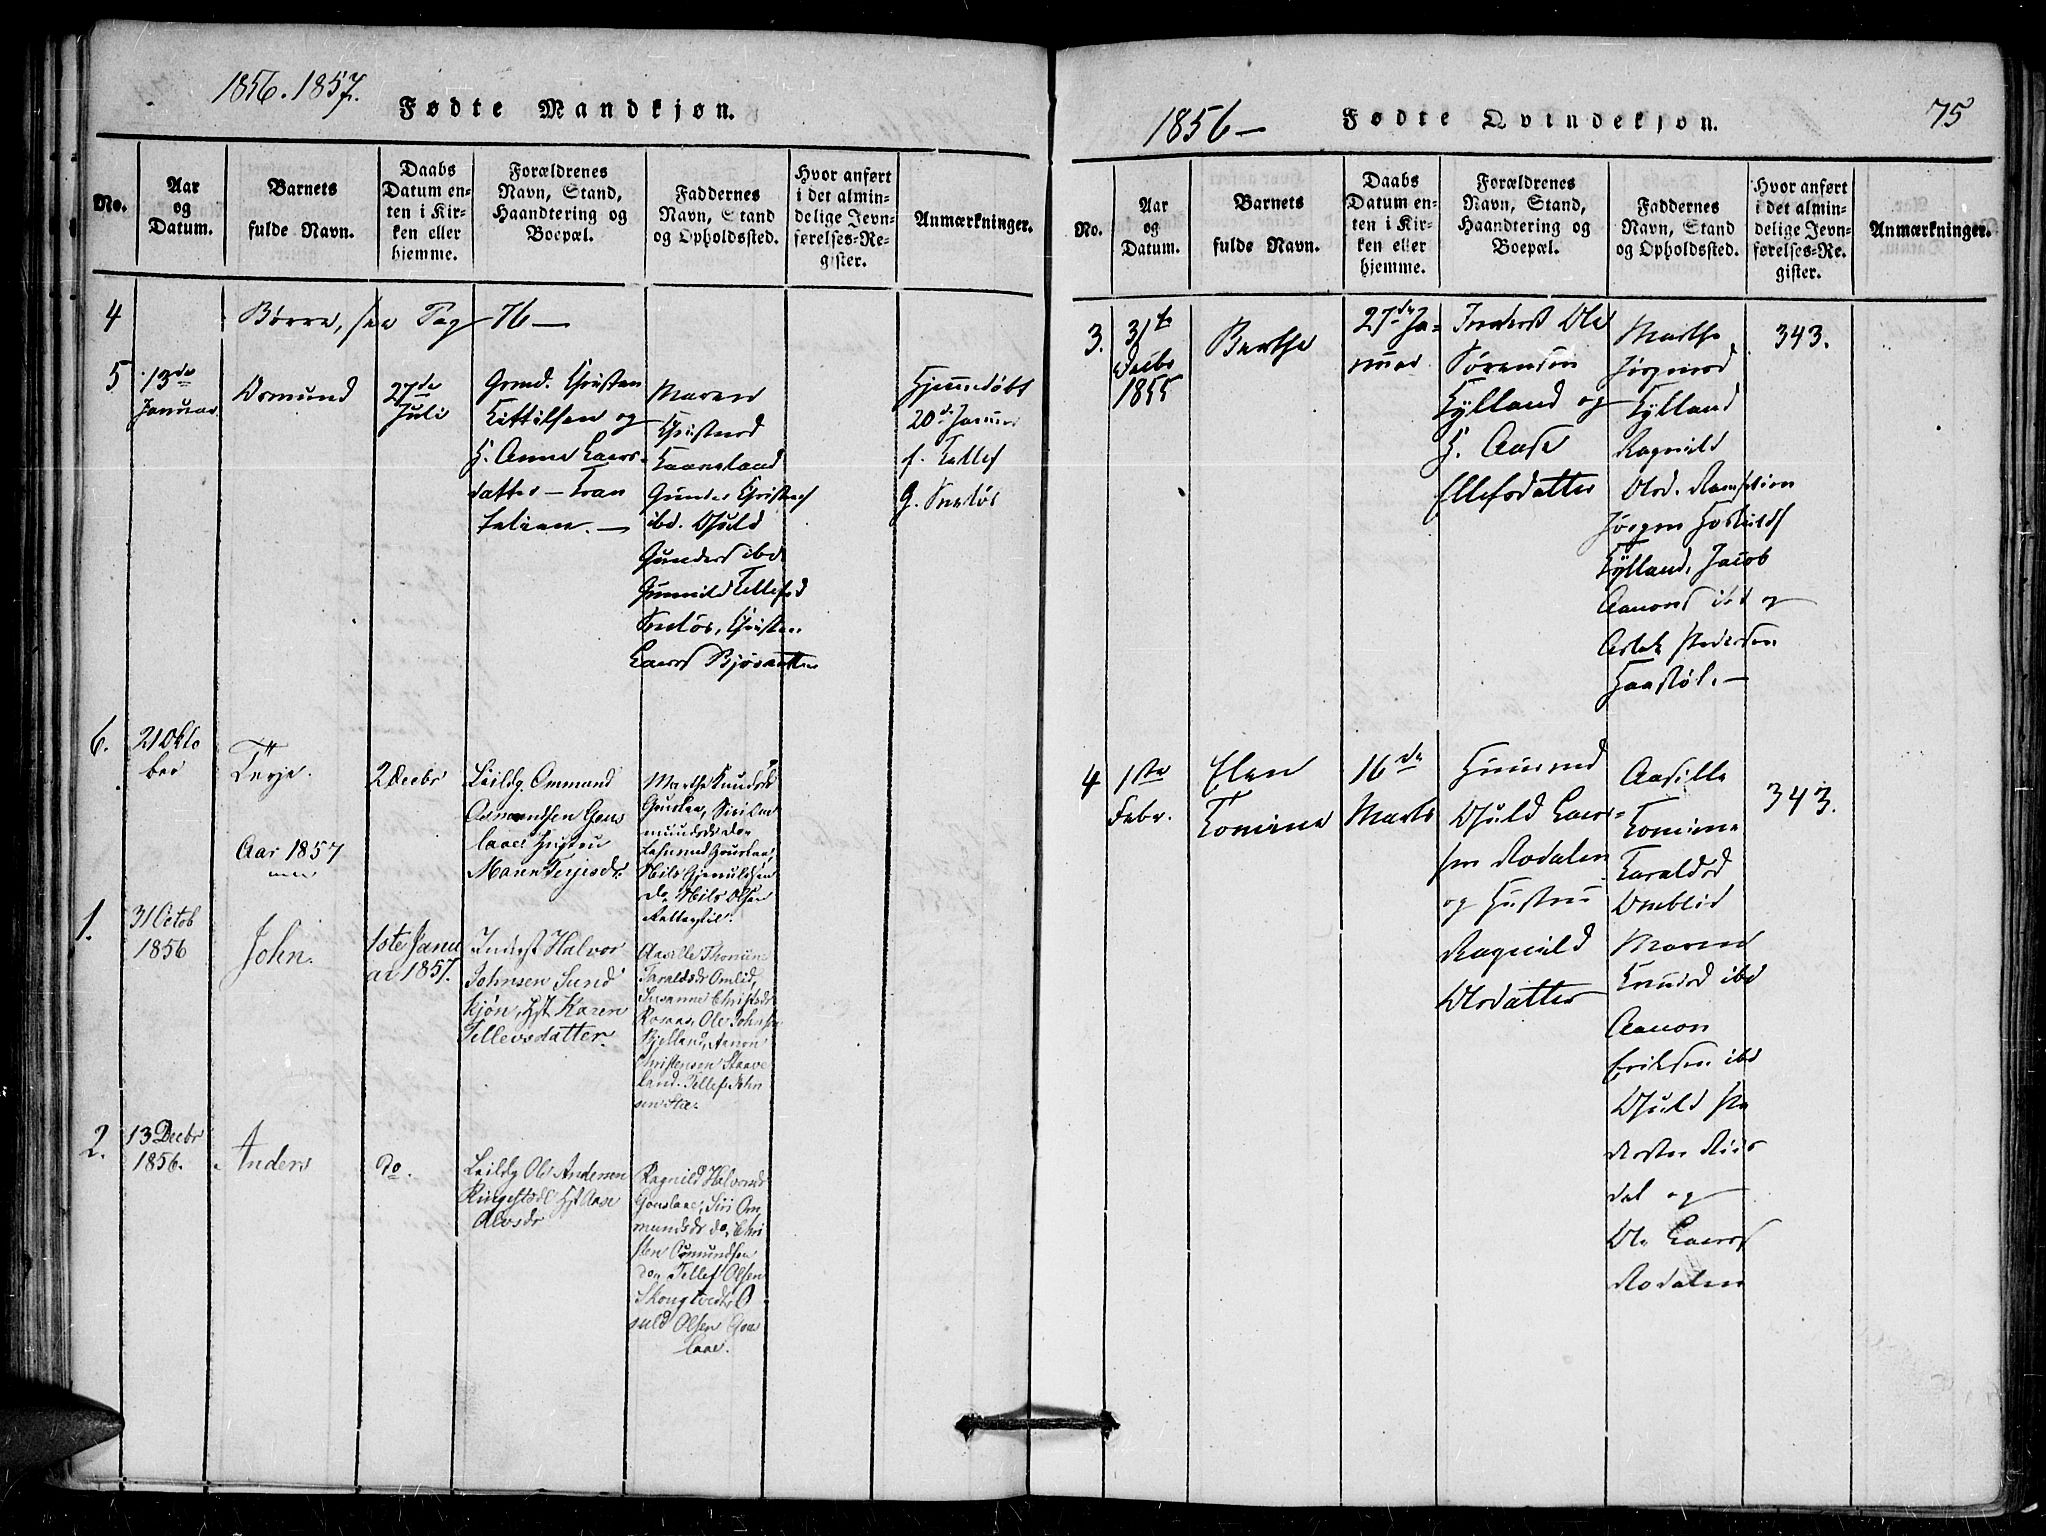 1856. 1857.
Fødte Mandkjøn.
No.
Aar
og
Datum.
Barnets
fulde Navn.
Daabs
Datum en-
ten i Kir-
ken eller
hjemme.
Forældrenes
Navn, Stand,
Haandtering og
Boepæl.
Faddernes
Navn, Stand
og Opholdssted.
Hvor anført
i det almin-
delige Jevn-
førelses-Re-
gister.
Anmærkninger.
4
Børre, see Pag 76 —
5
13de
Januar
Osmund
27de
Juli
Grmd. Christen
Kittilsen og
H. Anne Laers-
datter — Tran
Maren
Christensd
Gunder Christens
ibd. Osuld
Gunders ibd
Gunnild Tellefsd
Sneløs, Christen
Laers
Hjemmedøbt
20de Januar
f. Tellef
G. Sneløs
6.
21 Okto
ber
Terje.
2 Decbr
Leildg Ommund
Asmundsen Gous
laae Hustru
Maren Terjesdr.
Marthe Knudsdr
Gouslaa, Siri Om
mundsdr do,
Nils Gjeruldsen
do, Nils Olsen
Aar 1857
1.
31 Octob
1856
John.
1ste Janu
ar 1857.
Inderst Halvor
Johnsen Sund
kjøn, Hst Karen
Tellevsdatter.
Aaselle Thomine
Taraldsdr Omlid,
Susanne Christsdr
Ole Johnsen
Bjelland, Aanon
Christensen Staave
land. Tellef John
sen
2.
13 Decbr
1856.
Anders
do.
Leildg Ole Andersen
Ringestøl Hst Aase
Olevsdr
Ragnild Halvorsd
Gouslaae, Siri Om
mundsdr do, Chri
sten Osmundsen
do, Tellef Olsen
Skougtvedt, O
suld Olsen Gou
laae.
1856 —
Fødte Qvindekjøn.
75
No.
Aar
og
Datum.
Barnets
fulde Navn.
Daabs
Datum en-
ten i Kir-
ken eller
hjemme.
Forældrenes
Navn, Stand,
Haandtering og
Boepæl.
Faddernes
Navn, Stand
og Opholdssted.
Hvor anført
i det almin-
delige Jevn-
førelses-Re-
gister.
Anmærkninger.
3.
31te
Decbr
1855
Berthe
27de Ja-
nuar
Inderst Ole
Sørensen
Kylland og
H. Aase
Ellefsdatter
Marthe
Jørgensd
Kylland
Ragnild
Olsd.
Jørgen
Kylland, Jacob
Aanons ibd og
Aslak Pedersen
Haastøl. —
343.
4
1ste
Febr.
Elen
Tomine
16de
Marts
Huusmd
Osuld Laer-
sen Rodalen
og Hustru
Ragnild
Olsdatter
Aasille
Tomine
Taraldsd
Omblid
Maren
Knudsd ibd
Aanon
Eriksen ibd
Osuld
dal og
Ole Laers
Rodalen
343.